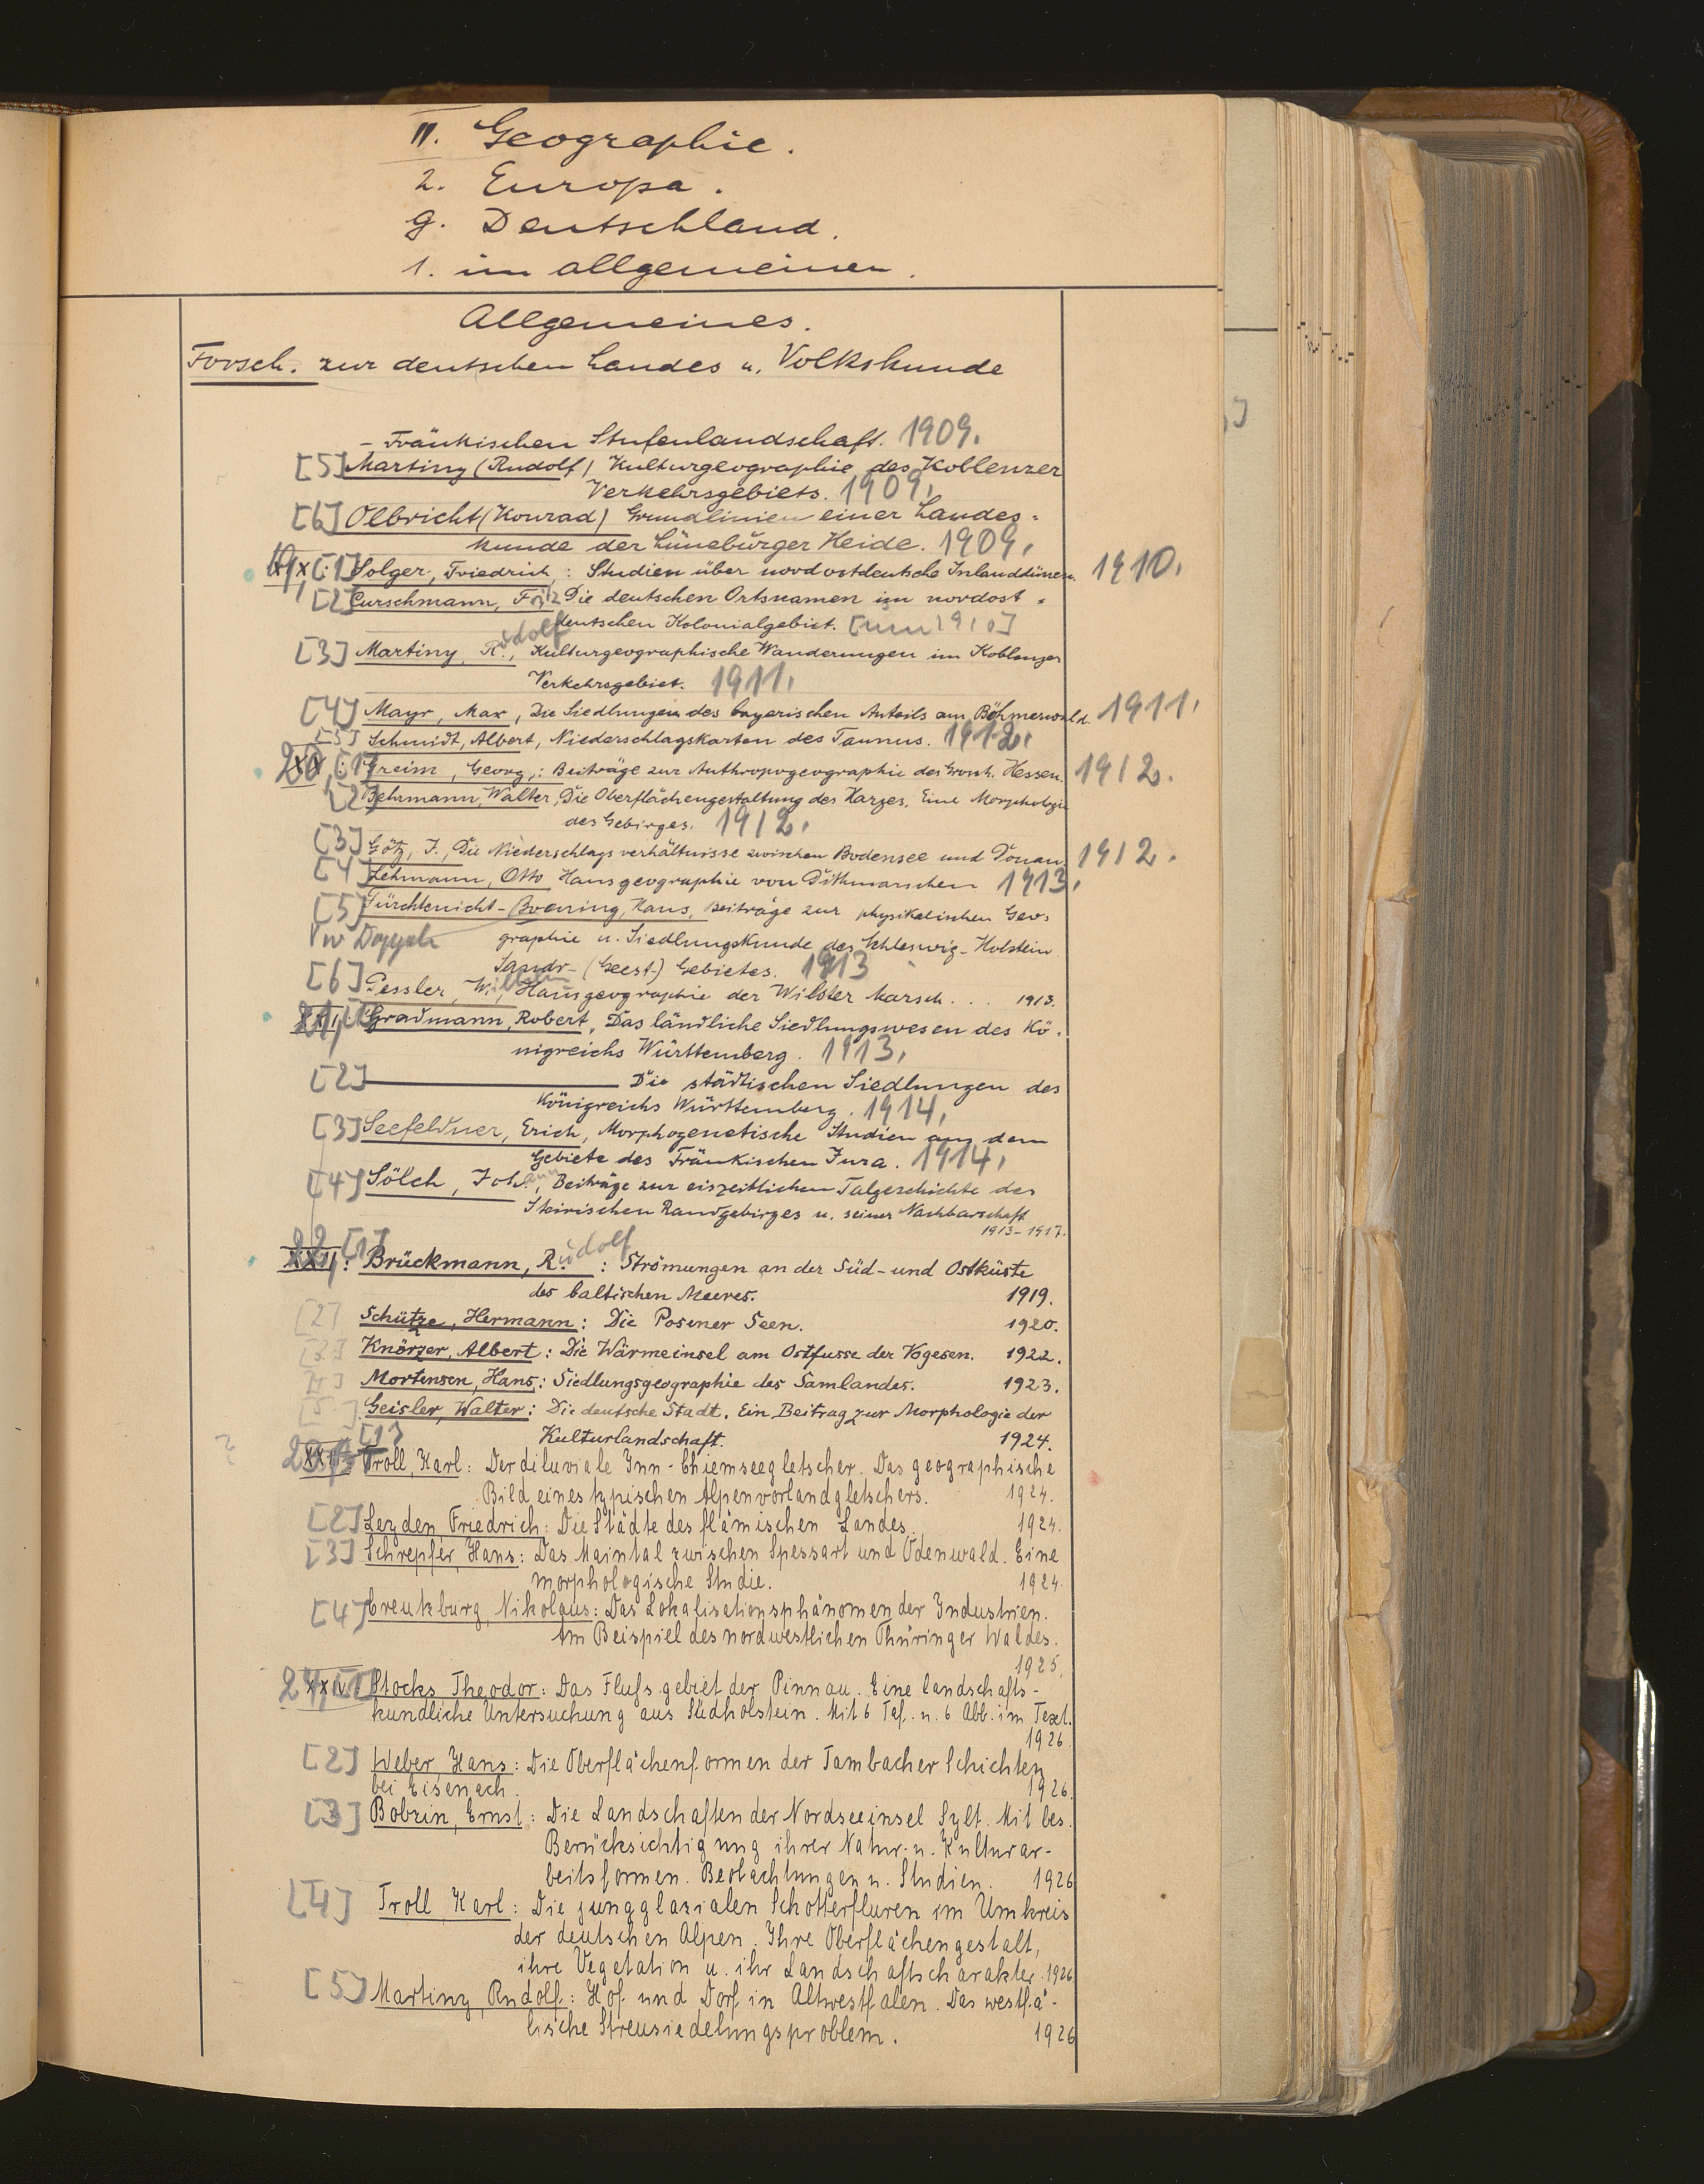 II. Geographie.
2. Europa.
g. Deutschland.
1. im allgemeinen.
Allgemeines.
Forsch. zur deutschen Landes u. Volkskunde
- Fränkischen Stufenlandschaft. 1909.
[5] Martiny (Rudolf) Kulturgeographie des Koblenzer
Verkehrsgebiets. 1909.
[6] Olbricht (Konrad) Grundlinien einer Landes=
kunde der Lüneburger Heide. 1909.
19, [1] Solger, Friedrich,: Studien über nordostdeutsche Inlanddünen. 1910.
[2] Curschmann, Fritz Die deutschen Ortsnamen im nordost=
deutschen Kolonialgebiet. [um 1910]
[3] Martiny, Rudolf, Kulturgeographische Wanderungen im Koblenzer
Verkehrsgebiet. 1911.
[4] Mayr, Max, Die Siedlungen des bayerischen Anteils am Böhmerwald. 1911.
[5] Schmidt, Albert, Niederschlagskarten des Taunus. 1912.
20, [1] Greim, Georg,: Beiträge zur Anthropogeographie des Grosh. Hessen. 1912.
[2] Behrmann, Walter, Die Oberflächengestaltung des Harzes. Eine Morphologie
des Gebirges. 1912.
[3] Götz, J., Die Niederschlagsverhältnisse zwischen Bodensee und Donau. 1912.
[4] Lehmann, Otto Hausgeographie von Dithmarschen 1913.
[5] Fürchtenicht-Boening, Hans, Beiträge zur physikalischen Geo=
graphie u. Siedlungskunde des Schleswig-Holstein
Sandr- (Geest-) Gebietes. 1913
[6] Pessler, Wilhelm, Hausgeographie der Wilster Marsch... 1913.
21, [1] Gradmann, Robert, Das ländliche Siedlungswesen des Kö=
nigreichs Württemberg. 1913.
[2] ——— Die städtischen Siedlungen des
Königreichs Württemberg. 1914.
[3] Seefeldner, Erich, Morphogenetische Studien aus dem
Gebiete des Fränkischen Jura. 1914.
[4] Sölch, Johann, Beiträge zur eiszeitlichen Talgeschichte des
Steirischen Randgebirges u. seiner Nachbarschaft
1913-1917.
22, [1] XXII: Brückmann, Rudolf: Strömungen an der Süd- und Ostküste
des baltischen Meeres. 1919.
[2] Schütze, Hermann: Die Posener Seen. 1920.
[3] Knörzer, Albert: Die Wärmeinsel am Ostfusse der Vogesen. 1922.
[4] Mortensen, Hans: Siedlungsgeographie des Samlandes. 1923.
[5] Geisler, Walter: Die deutsche Stadt. Ein Beitrag zur Morphologie der
Kulturlandschaft. 1924.
23, [1] Troll, Karl: Der diluviale Inn-Chiemseegletscher. Das geographische
Bild eines typischen Alpenvorlandgletschers. 1924.
[2] Leyden, Friedrich: Die Städte des flämischen Landes. 1924.
[3] Schrepfer, Hans: Das Maintal zwischen Spessart und Odenwald. Eine
morphologische Studie. 1924.
[4] Creutzburg, Nikolaus: Das Lokalisationsphänomen der Industrien.
Am Beispiel des nordwestlichen Thüringer Waldes.
1925.
24, [1] Stocks, Theodor: Das Flußgebiet der Pinnau. Eine landschafts-
kundliche Untersuchung aus Südholstein. Mit 6 Taf. u. 6 Abb. im Text.
1926.
[2] Weber, Hans: Die Oberflächenformen der Tambacher Schichten
bei Eisenach. 1926.
[3] Bobzin, Ernst: Die Landschaften der Nordseeinsel Sylt. Mit bes.
Berücksichtigung ihrer Natur- u. Kulturar-
beitsformen. Beobachtungen u. Studien. 1926
[4] Troll Karl: Die jungglazialen Schotterfluren im Umkreis
der deutschen Alpen. Ihre Oberflächengestalt,
ihre Vegetation u. ihr Landschaftscharakter. 1926
[5] Martiny, Rudolf: Hof und Dorf in Altwestfalen. Das westfä-
lische Streusiedelungsproblem. 1926